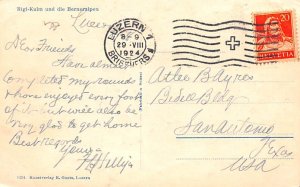 Rigi-Kulm und die Berneralpen
Luzern
LUZERN 1
29.VIII
1924
BRIEFVERS.
20
HELVETIA
Dear Friends
Have almost
Completed my rounds
have enjoyed every foot
of it but will also be
very glad to get home
Best regards
Yours
Atlee B Ayres
Bedell Bldg
San Antonio
Texas
USA